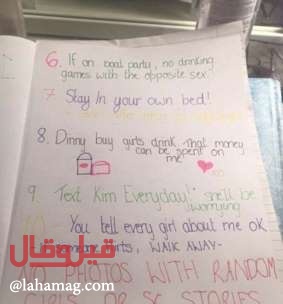 6. If on boat party, no drinking
games with the opposite sex.
7. Stay in your own bed!
8. Dinny buy girls drink. That money
can be spent on
me
9. Text Kim Everyday! she'll be
worrying
You tell every girl about me ok
starts, WALK AWAY-
PHOTOS WITH RANDOM
GIRLS OR SC STORIES
قیل‌وقال
@lahamag.com